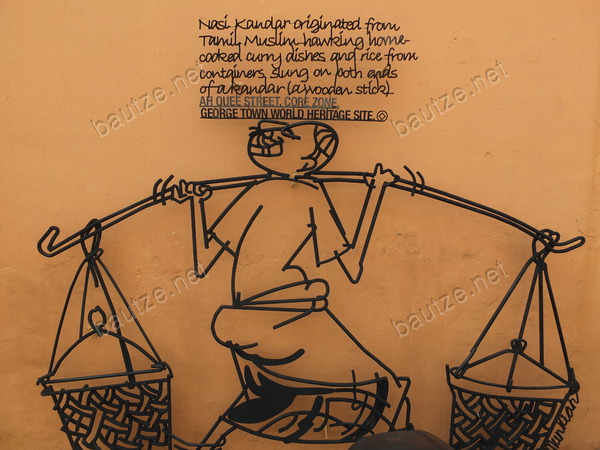 Nasi Kandar originated from
Tamil Muslim hawking home-
cooked curry dishes and rice from
containers slung on both ends
of a kandar (a wooden stick)
AH QUEE STREET, CORE ZONE,
GEORGE TOWN WORLD HERITAGE SITE. ©
bautze.net
bautze.net
bautze.net
bautze.net